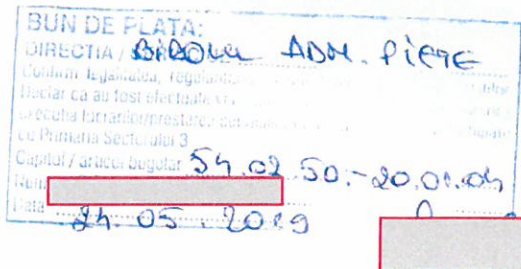 BUN DE PLATA:
DIRECTIA / BIROUL ADM. PIETE
Confirm legalitatea,
Declar că au fost efectuate
execuția lucrărilor/prestarea
cu Primăria Sectorului 3
Capitol / articol bugetar 54.02.50.-20.01.04
Data 24.05.2019